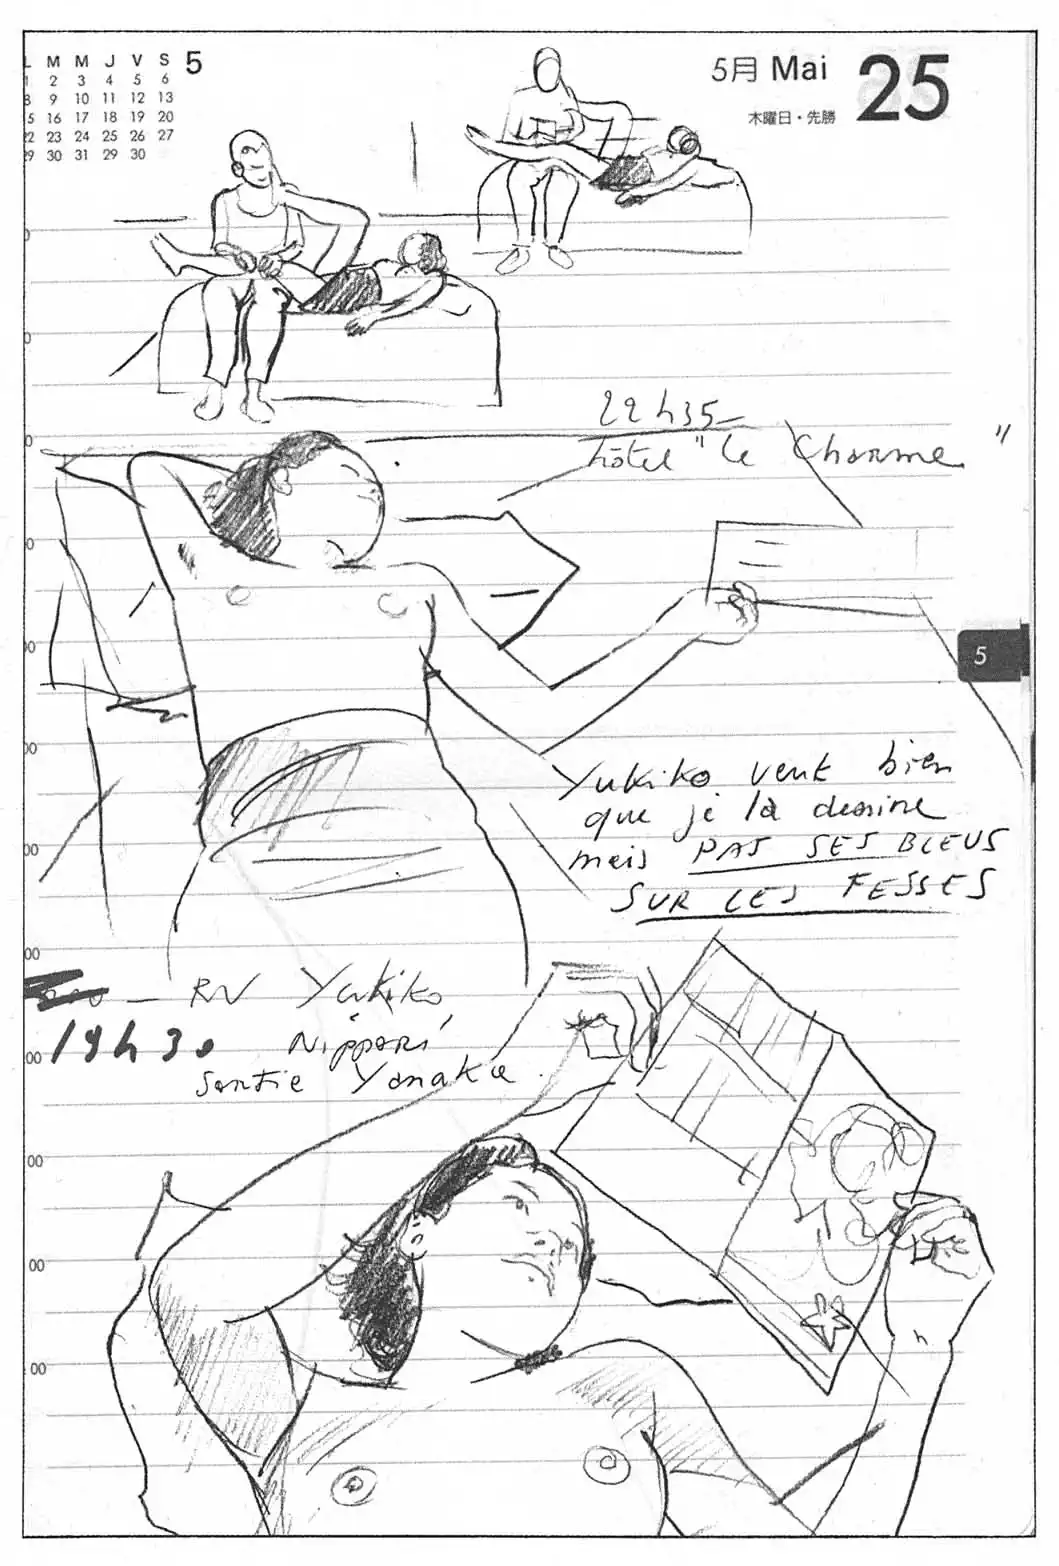 L M M J V S 5
1 2 3 4 5 6
8 9 10 11 12 13
15 16 17 18 19 20
22 23 24 25 26 27
29 30 31 29 30
5月 Mai 25
木曜日・先勝
22h35
hôtel "le Charme"
5
Yukiko veut bien
que je la dessine
mais PAS SES BLEUS
SUR LES FESSES
— RV Yukiko
19h30 Nippori
sortie Yanaka.
00
00
00
00
00
00
00
00
00